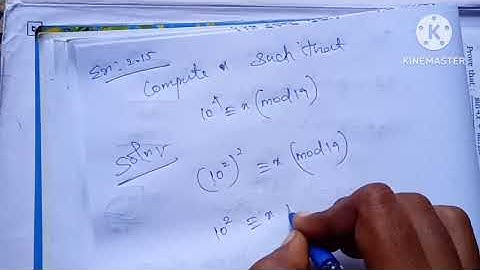 Sn: 2.15
Compute x such that
10⁴ ≡ x (mod 19)
Soln:
(10²)² ≡ x (mod 19)
10² ≡ x
KINEMASTER
Prove that